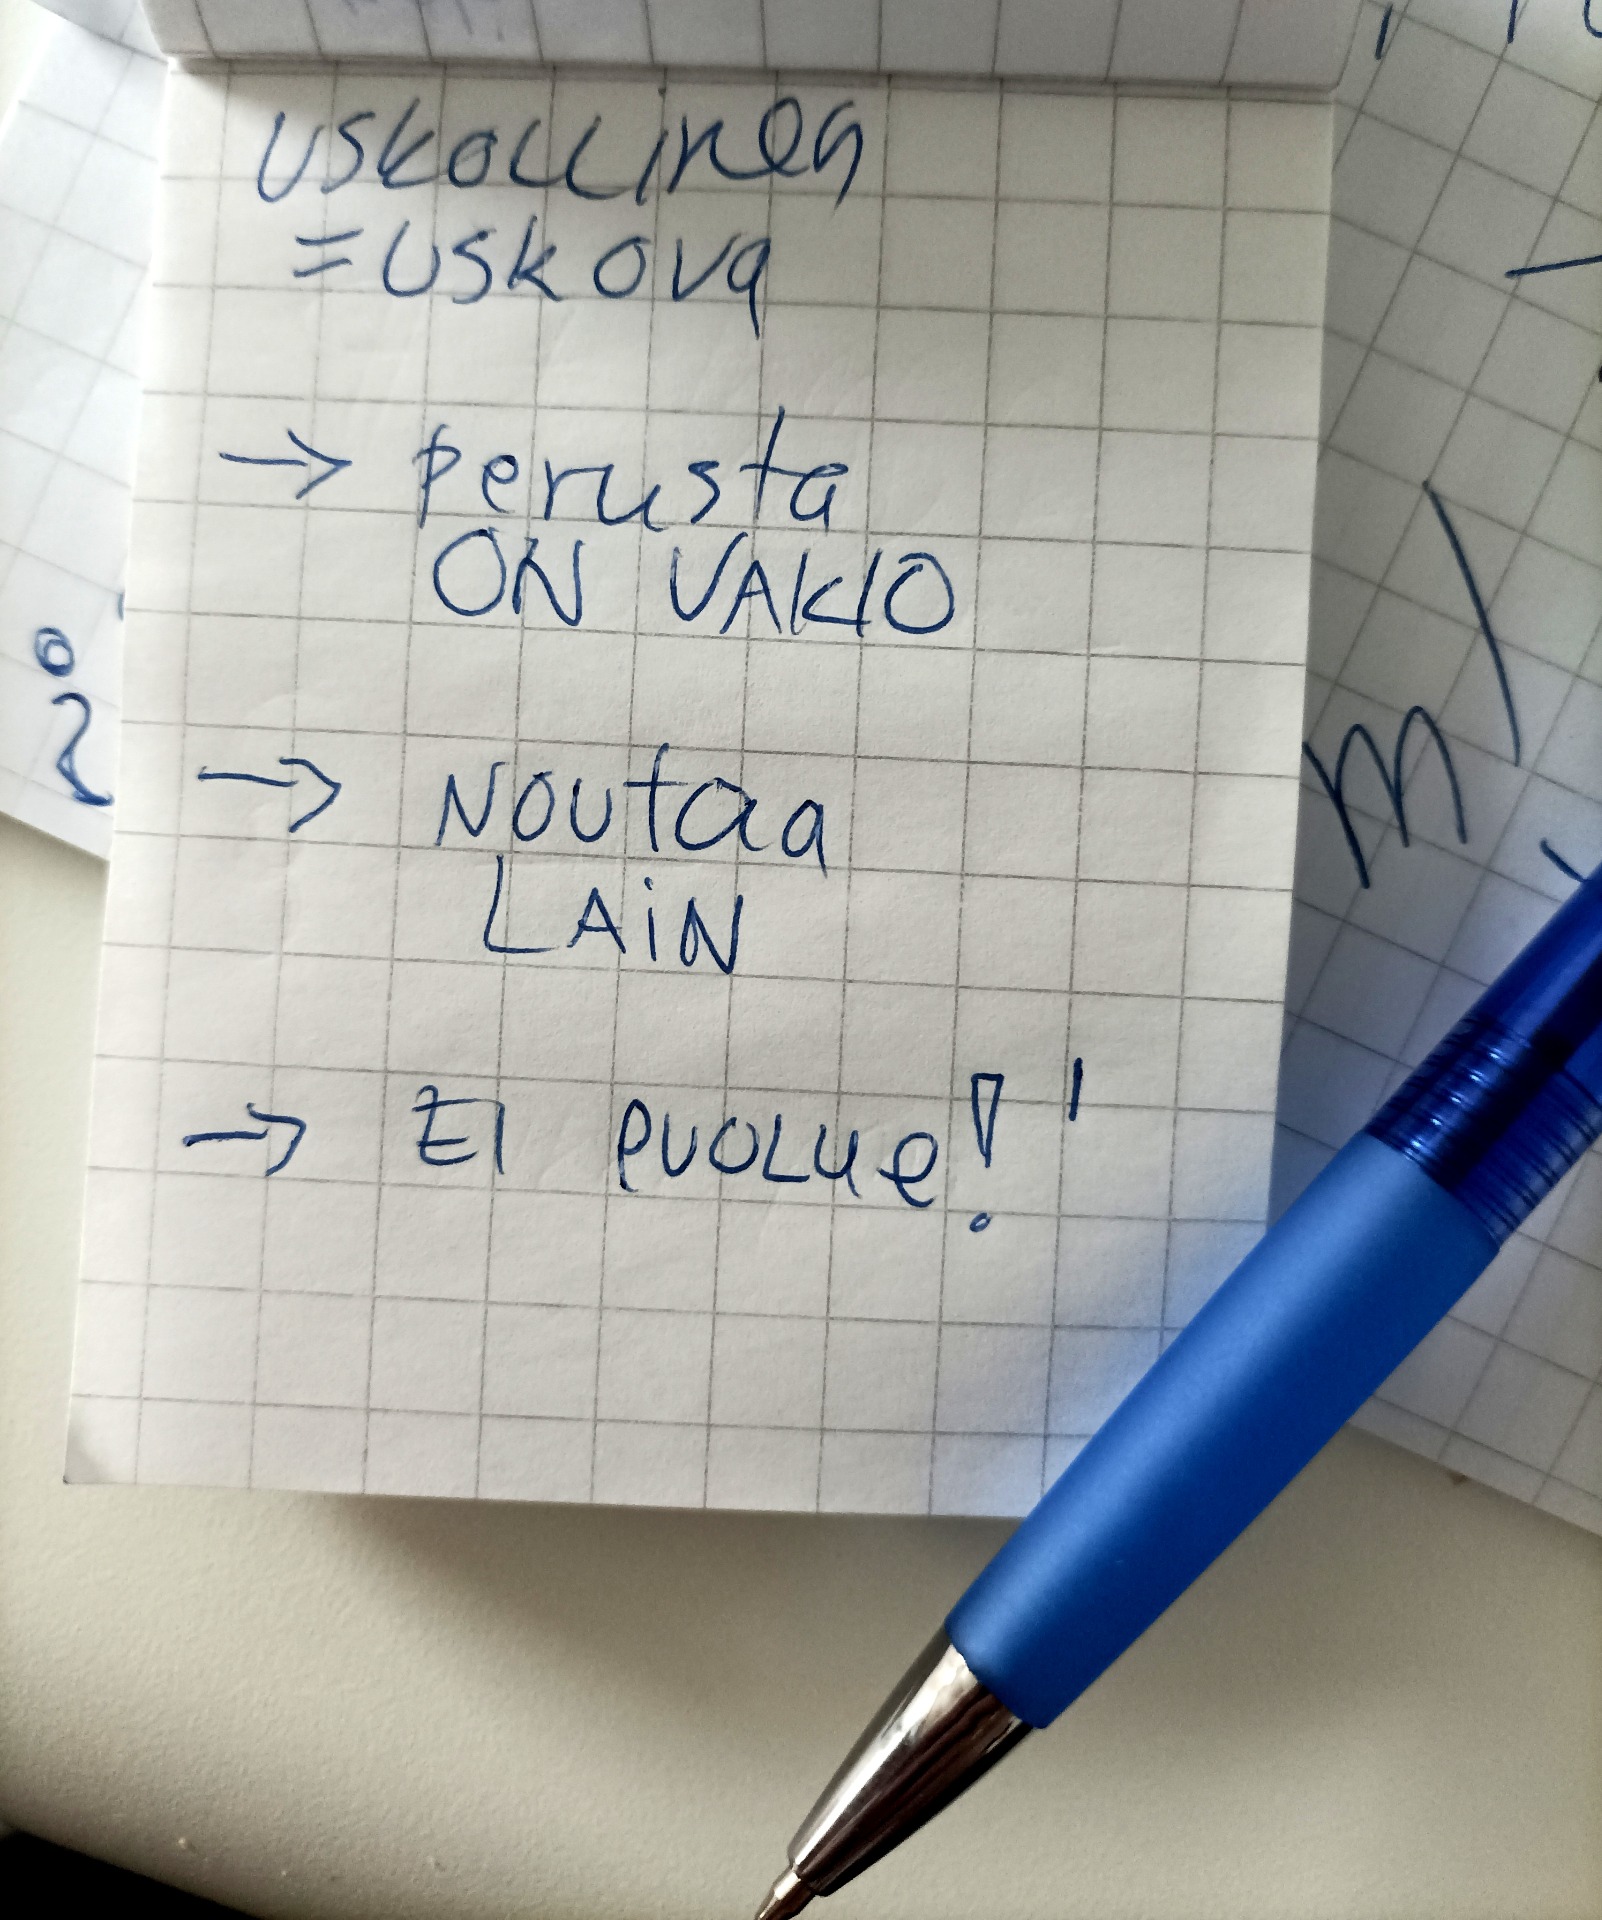 uskollinen
= uskova
→ perusta
ON VAKIO
→ Noutaa
LAIN
→ EI puolue!'
m